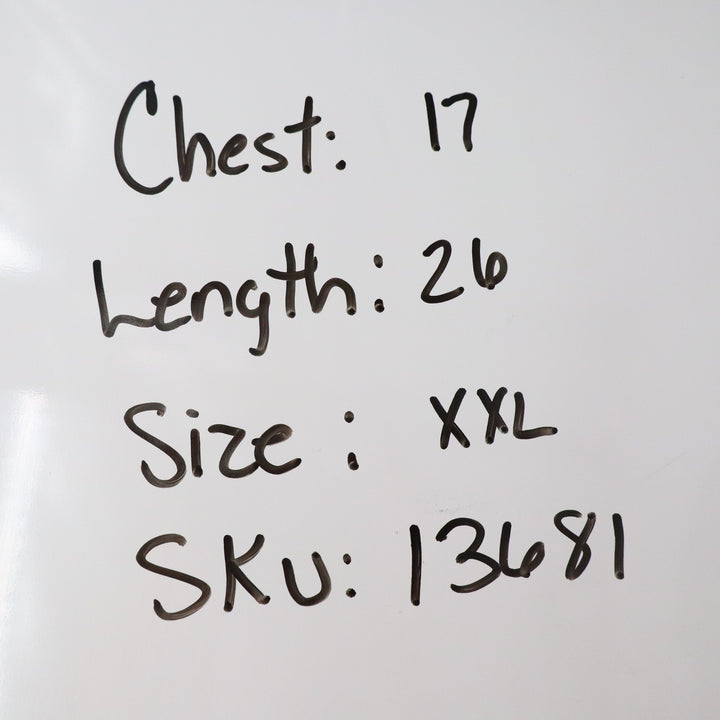 Chest: 17
Length: 26
Size: XXL
SKU: 13681